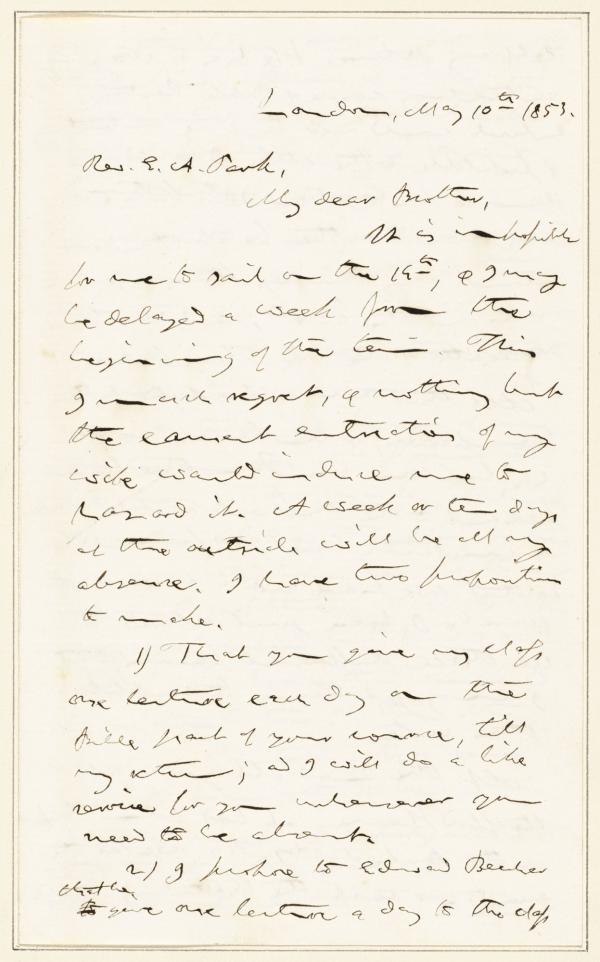 London, May 10th 1853.
Rev. E. A. Park,
My dear Brother,
It is impossible
for me to sail on the 19th, & I may
be delayed a week from the
beginning of the term. This
I much regret, & nothing but
the earnest entreaties of my
wife would induce me to
hazard it. A week or ten days
at the outside will be all my
absence. I have two propositions
to make.
1) That you give my class
one lecture each day on the
Bible part of your course, till
my return; and I will do a like
service for you whenever you
need to be absent.
2) I propose to Edward Beecher
that he
to give one lecture a day to the class